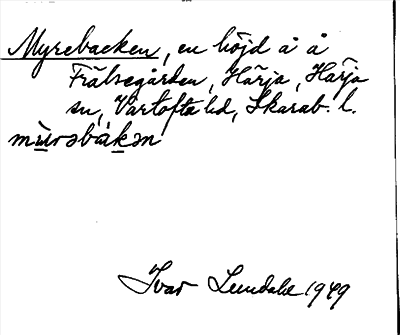 Myrebacken, en höjd å å
Frälsegården, Härja, Härja
sn, Vartofta hd, Skarab. l.
mùrəbàkən
Ivar Lundahl 1949